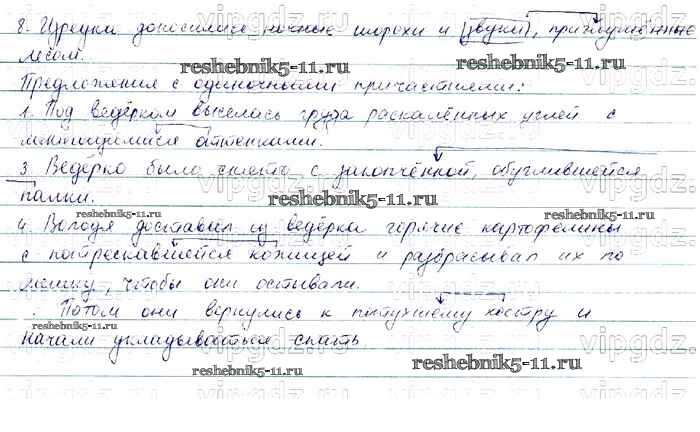 8. Изредка доносились ночные шорохи и (звуки), приглушённые
лесом.
Предложения с одиночными причастиями:
1. Под ведёрком высилась груда раскалённых углей с
меняющимися оттенками.
3. Ведёрко было снято с закопчённой, обуглившейся
палки.
4. Володя доставал из ведёрка горячие картофелины
с потрескавшейся кожицей и разбрасывал их по
мешку, чтобы они остывали.
. Потом они вернулись к потухшему костру и
начали укладываться спать
reshebnik5-11.ru
reshebnik5-11.ru
reshebnik5-11.ru
reshebnik5-11.ru
reshebnik5-11.ru
reshebnik5-11.ru
reshebnik5-11.ru
reshebnik5-11.ru
vipgdz.ru